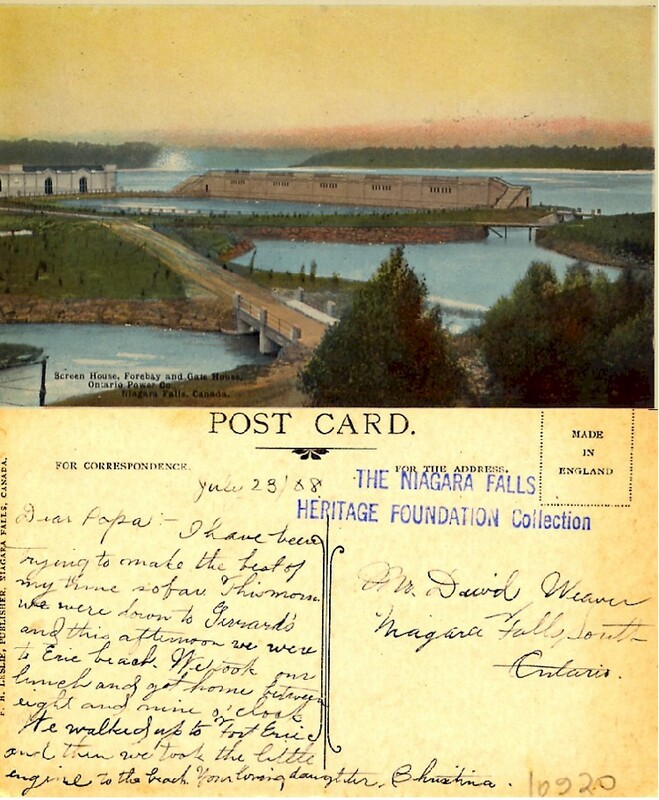 Screen House, Forebay and Gate House,
Ontario Power Co.
Niagara Falls, Canada.
POST CARD.
FOR CORRESPONDENCE.
FOR THE ADDRESS.
MADE
IN
ENGLAND
THE NIAGARA FALLS
HERITAGE FOUNDATION Collection
F. H. LESLIE, PUBLISHER, NIAGARA FALLS, CANADA.
July 23/
Dear Papa:- I have been
trying to make the best of
my time so far. This morn.
we were down to
and this afternoon we were
to Erie beach. We took our
lunch and got home between
eight and nine o'clock.
We walked up to Fort Erie
and then we took the little
engine to the beach. Your loving daughter, Christina.
Mr. David Weaver
Niagara Falls South
Ontario.
10920